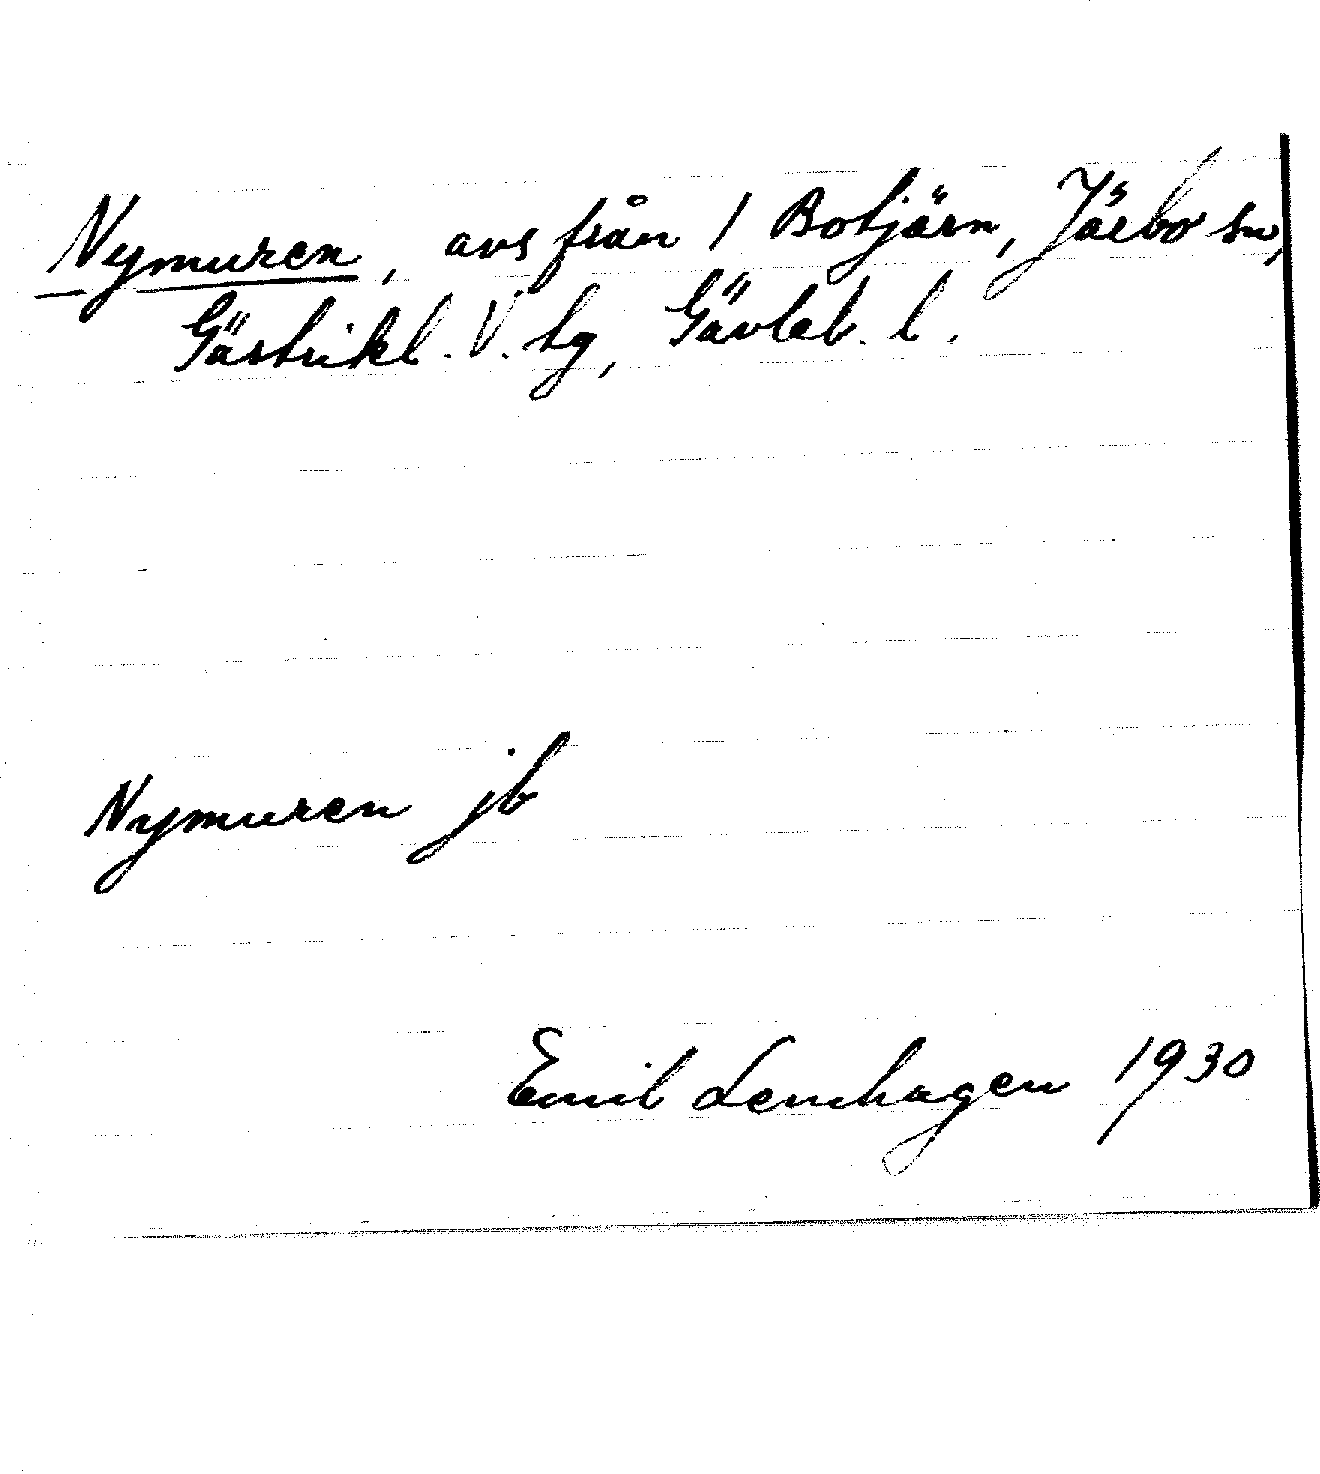 Nymuren, avs från 1 Botjärn, Järbo sn,
Gästrikl. V. tg, Gävleb. l.
Nymuren jb
Emil Lemhagen 1930